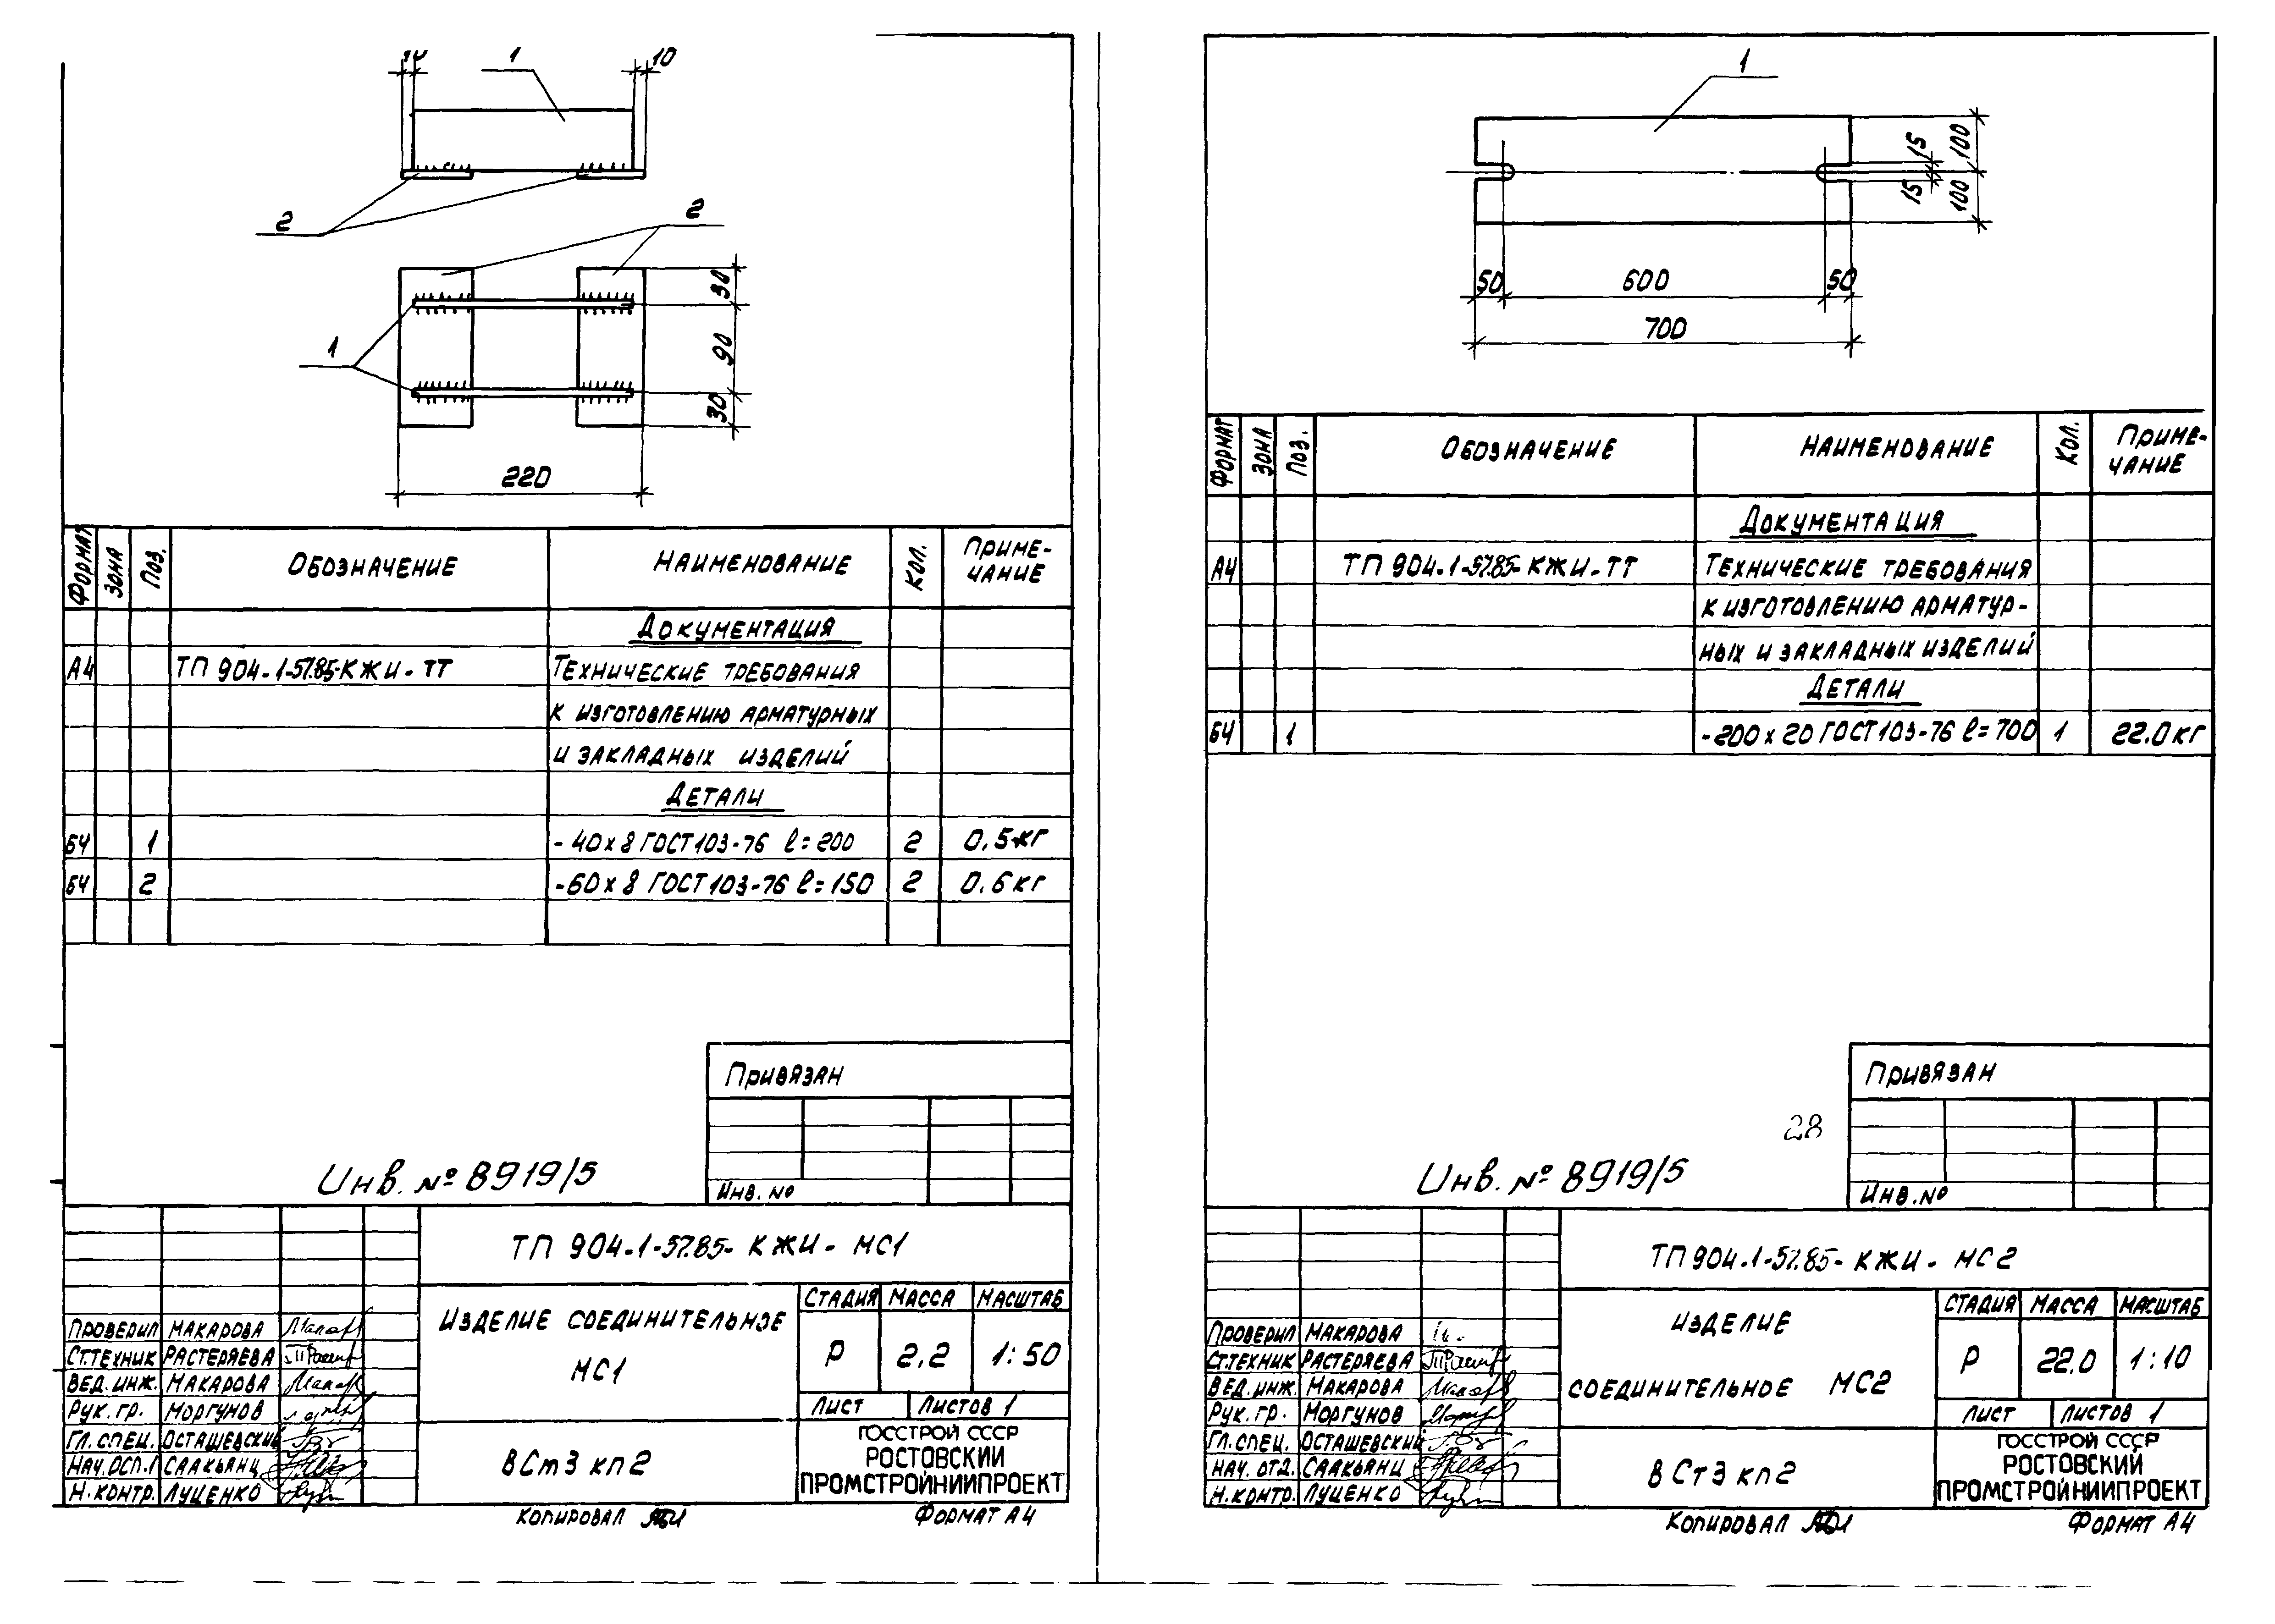 10 1 10
2
2
1
30
90
30
220
ФОРМАТ ЗОНА ПОЗ. ОБОЗНАЧЕНИЕ НАИМЕНОВАНИЕ КОЛ. ПРИМЕ-
ЧАНИЕ
ДОКУМЕНТАЦИЯ
А4 ТП 904-1-57.85-КЖИ-ТТ ТЕХНИЧЕСКИЕ ТРЕБОВАНИЯ
К ИЗГОТОВЛЕНИЮ АРМАТУРНЫХ
И ЗАКЛАДНЫХ ИЗДЕЛИЙ
ДЕТАЛИ
БЧ 1 -40х8 ГОСТ103-76 ℓ=200 2 0.5кг
БЧ 2 -60х8 ГОСТ103-76 ℓ=150 2 0.6кг
ПРИВЯЗАН
ИНВ. №
Инв. № 8919/5
ТП 904-1-57.85- КЖИ- МС1
ИЗДЕЛИЕ СОЕДИНИТЕЛЬНОЕ
МС1
СТАДИЯ МАССА МАСШТАБ
Р 2.2 1:50
ЛИСТ ЛИСТОВ 1
ПРОВЕРИЛ МАКАРОВА
СТ.ТЕХНИК РАСТЕРЯЕВА
ВЕД.ИНЖ. МАКАРОВА
РУК.ГР. МОРГУНОВ
ГЛ.СПЕЦ. ОСТАШЕВСКИЙ
НАЧ.ОСП.1 СААКЬЯНЦ
Н.КОНТР. ЛУЦЕНКО
ВСт3 кп2
ГОССТРОЙ СССР
РОСТОВСКИЙ
ПРОМСТРОЙНИИПРОЕКТ
КОПИРОВАЛ ФОРМАТ А4
1
15
15
100
100
50 600 50
700
ФОРМАТ ЗОНА ПОЗ. ОБОЗНАЧЕНИЕ НАИМЕНОВАНИЕ КОЛ. ПРИМЕ-
ЧАНИЕ
ДОКУМЕНТАЦИЯ
А4 ТП 904-1-57.85-КЖИ-ТТ ТЕХНИЧЕСКИЕ ТРЕБОВАНИЯ
К ИЗГОТОВЛЕНИЮ АРМАТУР-
НЫХ И ЗАКЛАДНЫХ ИЗДЕЛИЙ
ДЕТАЛИ
БЧ 1 -200х20 ГОСТ103-76 ℓ=700 1 22.0кг
ПРИВЯЗАН
ИНВ.№
28
Инв. № 8919/5
ТП 904-1-57.85- КЖИ- МС2
ИЗДЕЛИЕ
СОЕДИНИТЕЛЬНОЕ МС2
СТАДИЯ МАССА МАСШТАБ
Р 22.0 1:10
ЛИСТ ЛИСТОВ 1
ПРОВЕРИЛ МАКАРОВА
СТ.ТЕХНИК РАСТЕРЯЕВА
ВЕД.ИНЖ. МАКАРОВА
РУК.ГР. МОРГУНОВ
ГЛ.СПЕЦ. ОСТАШЕВСКИЙ
НАЧ.ОТД. СААКЬЯНЦ
Н.КОНТР. ЛУЦЕНКО
ВСт3 кп2
ГОССТРОЙ СССР
РОСТОВСКИЙ
ПРОМСТРОЙНИИПРОЕКТ
КОПИРОВАЛ ФОРМАТ А4